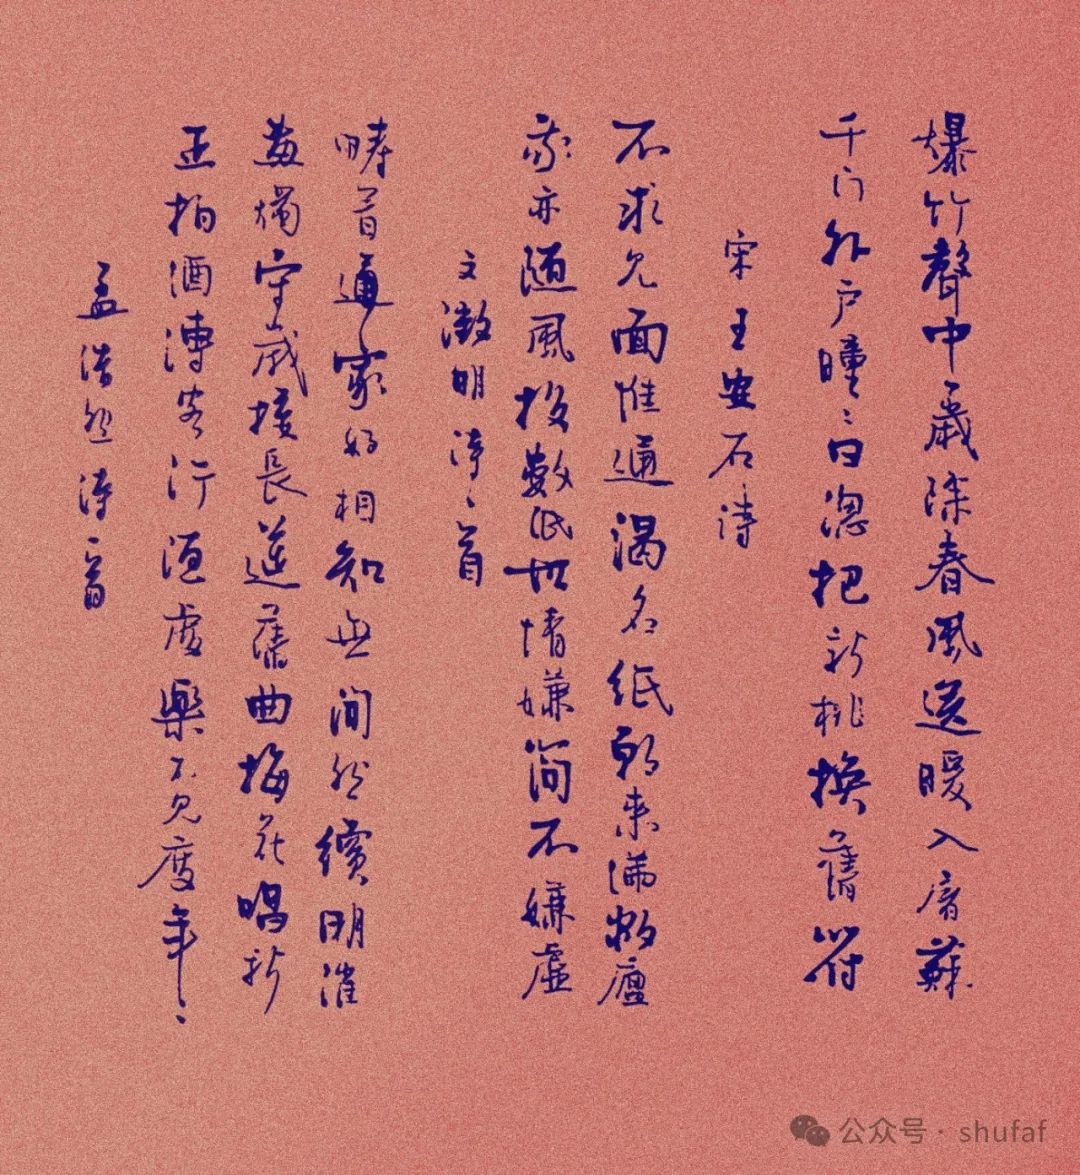 爆竹聲中一歲除春風送暖入屠蘇
千门萬户曈〻日總把新桃換舊符
宋王安石詩
不求见面惟通謁名紙朝来满敝廬
我亦随風投數紙世情嫌简不嫌虛
文徵明詩一首
疇昔通家好相知無间然續明催
畫燭守歲接長筵舊曲梅花唱新
正柏酒傳客行随處樂不见度年〻
孟浩然詩一首
公众号 · shufaf